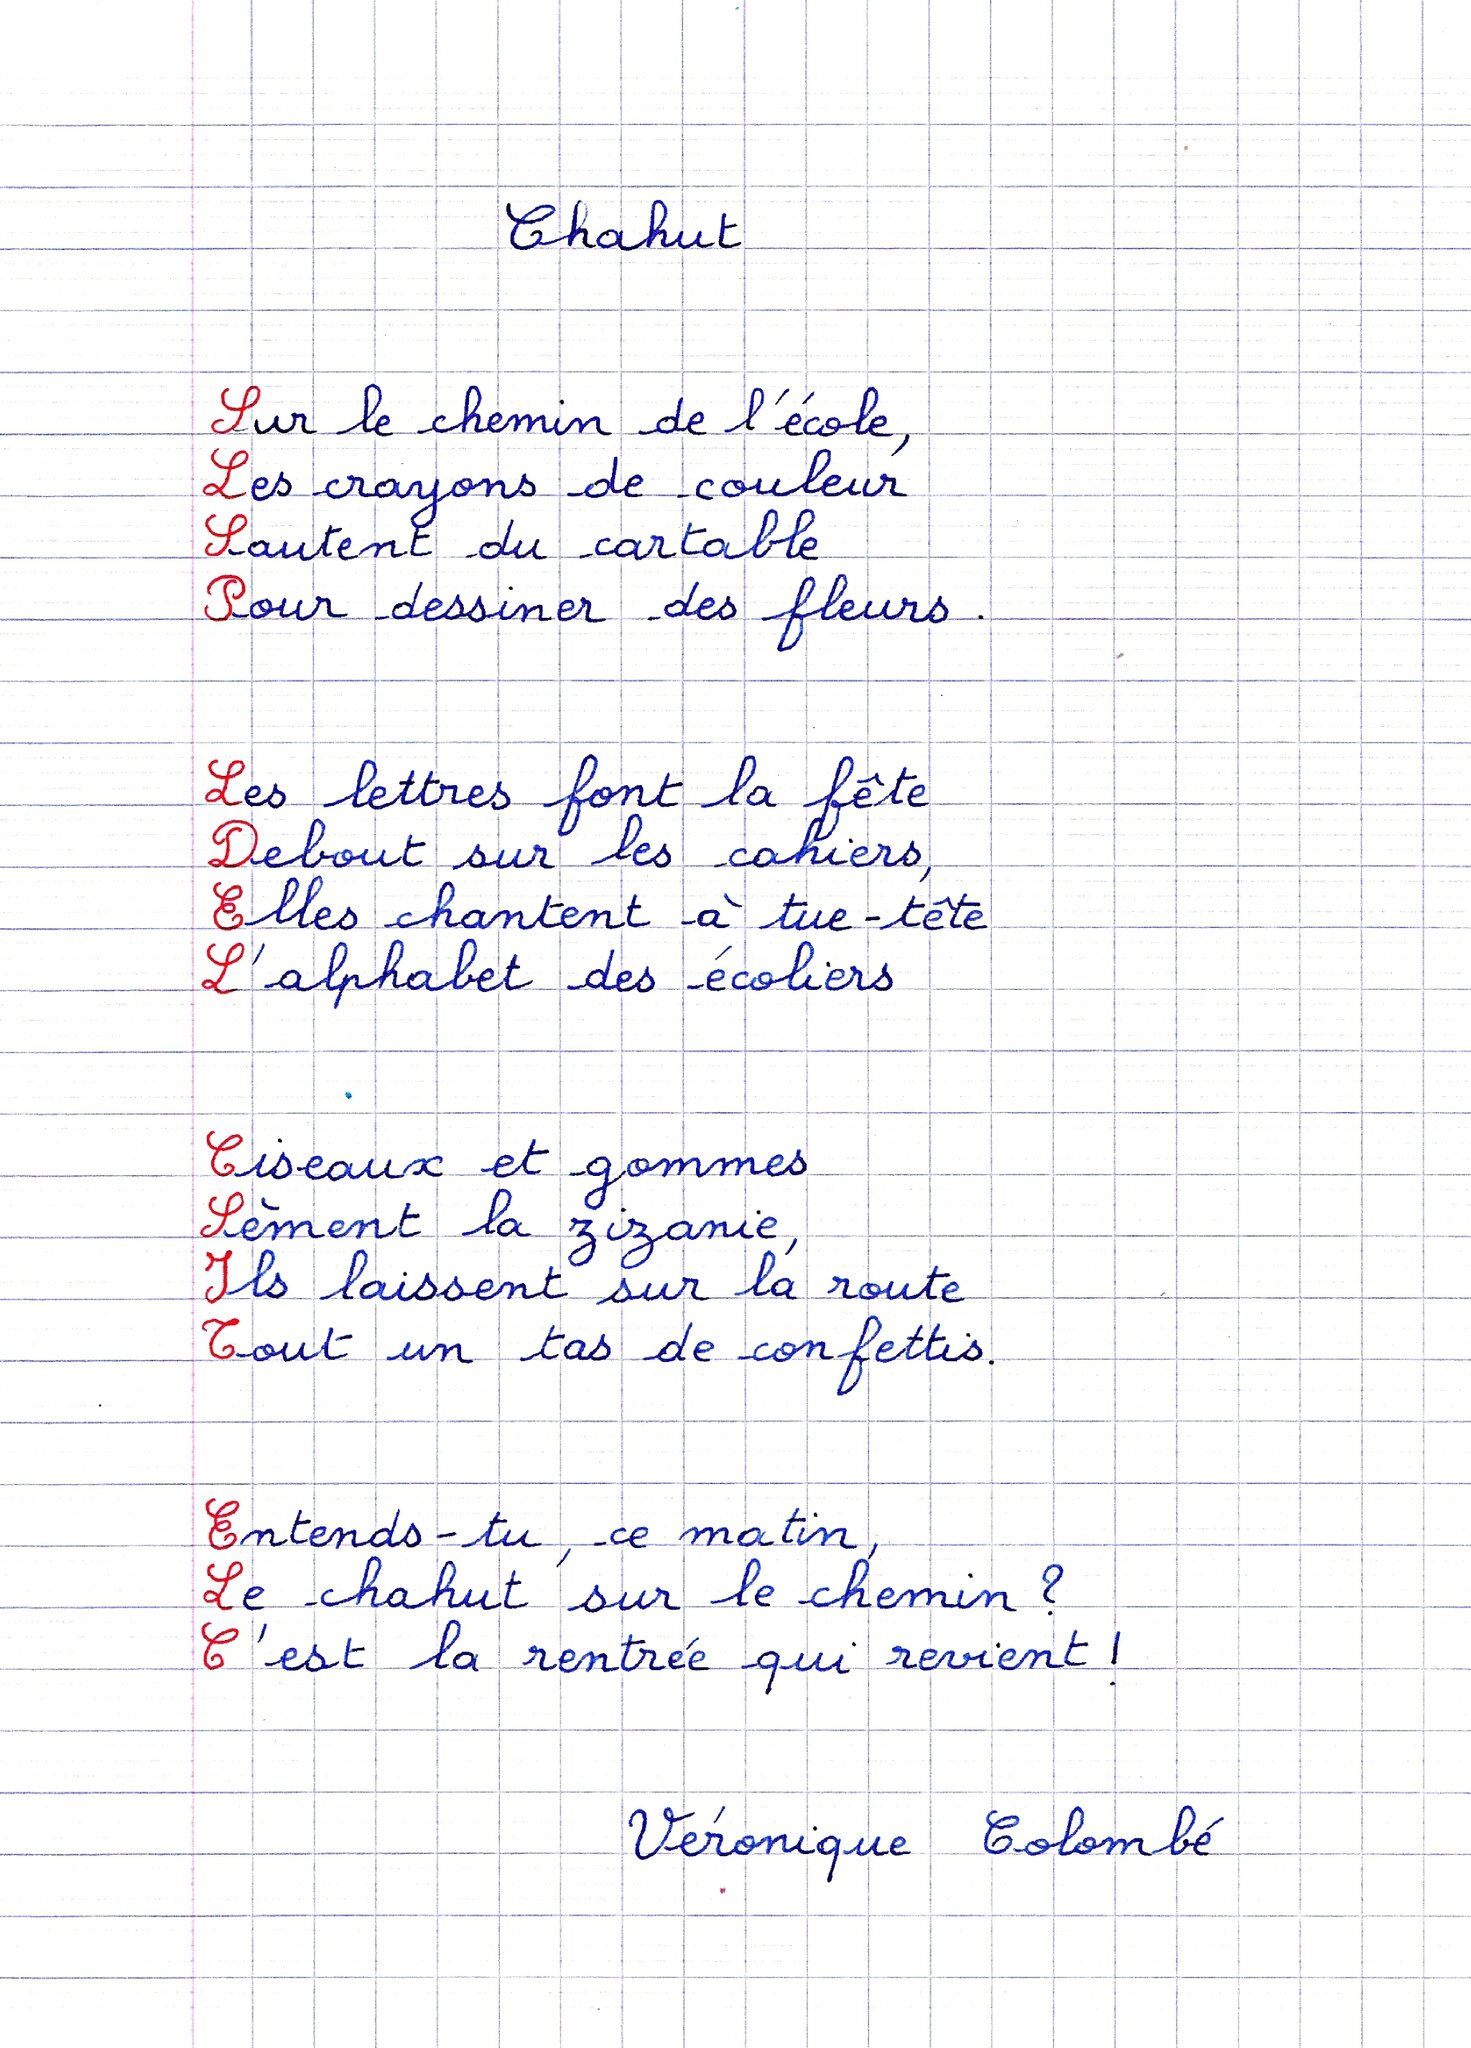 Chahut
Sur le chemin de l'école,
Les crayons de couleur
Sautent du cartable
Pour dessiner des fleurs.
Les lettres font la fête
Debout sur les cahiers,
Elles chantent à tue-tête
L'alphabet des écoliers
Ciseaux et gommes
Sèment la zizanie,
Ils laissent sur la route
Tout un tas de confettis.
Entends-tu, ce matin,
Le chahut sur le chemin ?
C'est la rentrée qui revient !
Véronique Colombé